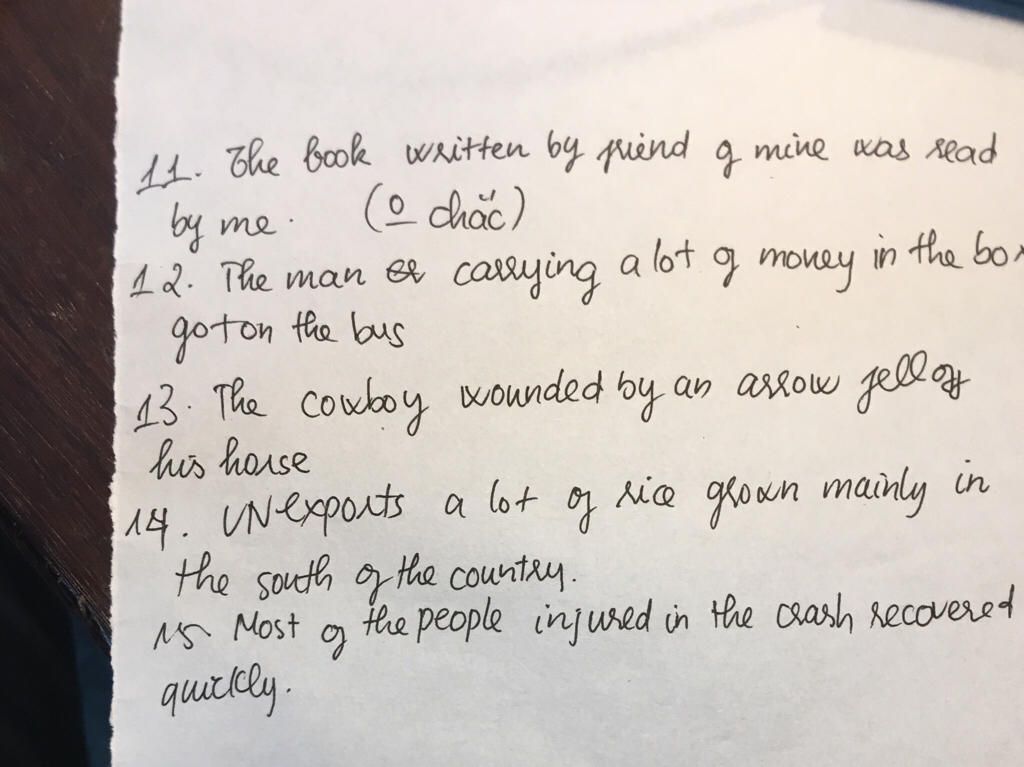 11. The book written by friend of mine was read
by me. (o chắc)
12. The man carrying a lot of money in the box
got on the bus
13. The cowboy wounded by an arrow fell off
his horse
14. VN exports a lot of rice grown mainly in
the south of the country.
15 Most of the people injured in the crash recovered
quickly.